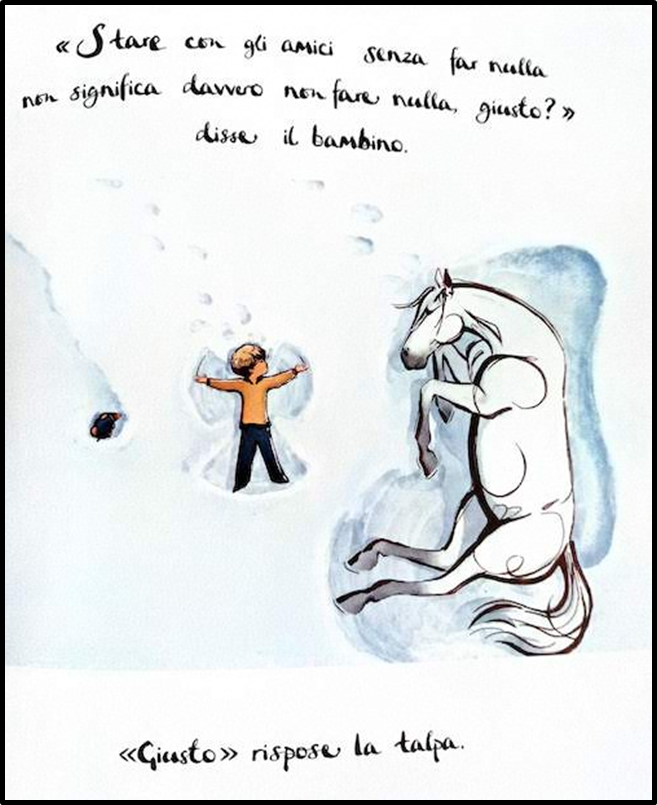 «Stare con gli amici senza far nulla
non significa davvero non fare nulla, giusto?»
disse il bambino.
«Giusto» rispose la talpa.